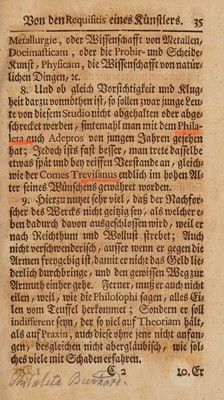 Von den Requisitis eines Künstlers. 35
Metallurgie, oder Wissenschafft von Metallen,
Docimasticam, oder die Probir- und Scheide-
Kunst, Physicam, die Wissenschafft von natür-
lichen Dingen, ꝛc.
8. Und ob gleich Vorsichtigkeit und Klug-
heit darzu vonnöthen ist, so sollen zwar junge Leu-
te von diesem Studio nicht abgehalten oder abge-
schrecket werden, sintemahl man mit dem Phila-
leta auch Adeptos von jungen Jahren gesehen
hat; Jedoch ists fast besser, man trete dasselbe
etwas spät und bey reiffen Verstande an, gleich-
wie der Comes Trevisanus endlich im hohen Al-
ter seines Wünschens gewähret worden.
9. Hierzu nutzet sehr viel, daß der Nachfor-
scher des Wercks nicht geitzig sey, als welcher e-
ben dadurch davon ausgeschlossen wird, weil er
nach Reichthum und Wollust strebet; Auch
nicht verschwenderisch, ausser wenn er gegen die
Armen freygebig ist, damit er nicht das Geld lie-
derlich durchbringe, und den gewissen Weg zur
Armuth einher gehe. Ferner, muß er auch nicht
eilen, weil, wie die Philosophi sagen, alles Ei-
len vom Teuffel herkommet; Sondern er soll
indifferent seyn, der so viel auf Theoriam hält,
als auf Praxin, auch diese ohne jene nicht anfan-
gen, desgleichen nicht abergläubisch, wie sol-
ches viele mit Schaden erfahren.
C 2 10. Er
Philaleta